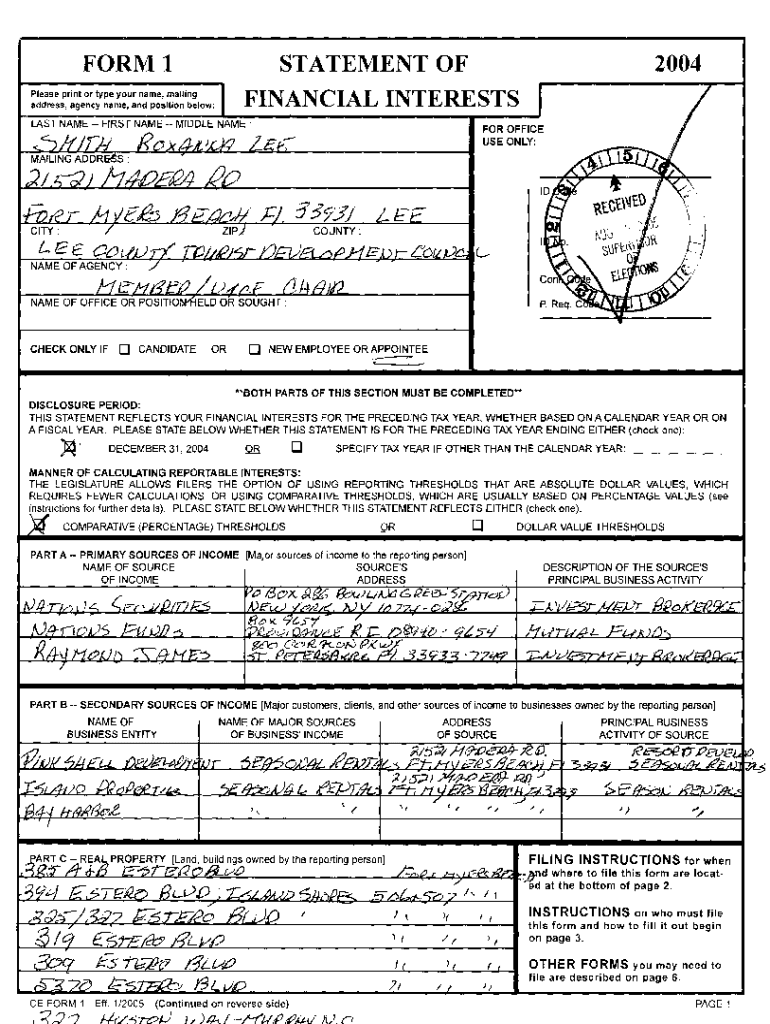 FORM 1 STATEMENT OF 2004
FINANCIAL INTERESTS
Please print or type your name, mailing
address, agency name, and position below:
LAST NAME -- FIRST NAME -- MIDDLE NAME :
SMITH ROXANNA LEE
MAILING ADDRESS :
21521 MADERA RD
FORT MYERS BEACH Fl. 33931 LEE
CITY : ZIP : COUNTY :
LEE COUNTY TOURIST DEVELOPMENT COUNCIL
NAME OF AGENCY :
MEMBER/VICE CHAIR
NAME OF OFFICE OR POSITION HELD OR SOUGHT :
CHECK ONLY IF ☐ CANDIDATE OR ☐ NEW EMPLOYEE OR APPOINTEE
FOR OFFICE
USE ONLY:
ID Code
ID No.
Conf. Code
P. Req. Code
RECEIVED
AUG
SUPERVISOR
OF
ELECTIONS
**BOTH PARTS OF THIS SECTION MUST BE COMPLETED**
DISCLOSURE PERIOD:
THIS STATEMENT REFLECTS YOUR FINANCIAL INTERESTS FOR THE PRECEDING TAX YEAR, WHETHER BASED ON A CALENDAR YEAR OR ON
A FISCAL YEAR. PLEASE STATE BELOW WHETHER THIS STATEMENT IS FOR THE PRECEDING TAX YEAR ENDING EITHER (check one):
☒ DECEMBER 31, 2004 OR ☐ SPECIFY TAX YEAR IF OTHER THAN THE CALENDAR YEAR:
MANNER OF CALCULATING REPORTABLE INTERESTS:
THE LEGISLATURE ALLOWS FILERS THE OPTION OF USING REPORTING THRESHOLDS THAT ARE ABSOLUTE DOLLAR VALUES, WHICH
REQUIRES FEWER CALCULATIONS, OR USING COMPARATIVE THRESHOLDS, WHICH ARE USUALLY BASED ON PERCENTAGE VALUES (see
instructions for further details). PLEASE STATE BELOW WHETHER THIS STATEMENT REFLECTS EITHER (check one).
☒ COMPARATIVE (PERCENTAGE) THRESHOLDS OR ☐ DOLLAR VALUE THRESHOLDS
PART A -- PRIMARY SOURCES OF INCOME [Major sources of income to the reporting person]
NAME OF SOURCE SOURCE'S DESCRIPTION OF THE SOURCE'S
OF INCOME ADDRESS PRINCIPAL BUSINESS ACTIVITY
PO BOX 286 BOWLING GREEN STATION
NATIONS SECURITIES NEW YORK, NY 10274-0286 INVESTMENT BROKERAGE
BOX 9654
NATIONS FUNDS PROVIDANCE R.I 08940-9654 MUTUAL FUNDS
RAYMOND JAMES ST. PETERSBURG Fl 33933-7749 INVESTMENT BROKERAGE
PART B -- SECONDARY SOURCES OF INCOME [Major customers, clients, and other sources of income to businesses owned by the reporting person]
NAME OF NAME OF MAJOR SOURCES ADDRESS PRINCIPAL BUSINESS
BUSINESS ENTITY OF BUSINESS' INCOME OF SOURCE ACTIVITY OF SOURCE
21521 MADERA RD. RESORT DEVELOP
PINK SHELL DEVELOPMENT SEASONAL RENTALS FT. MYERS BEACH Fl 33931 SEASONAL RENTALS
21521 MADERA RD
ISLAND PROPERTIES SEASONAL RENTALS FT MYERS BEACH, Fl SEASON RENTALS
BAY HARBOR " " " " " " " "
PART C -- REAL PROPERTY [Land, buildings owned by the reporting person]
325 A&B ESTERO BLVD FORT MYERS BEACH
394 ESTERO BLVD, ISLAND SHORES 506&507 " "
325/327 ESTERO BLVD " " "
319 ESTERO BLVD " " "
309 ESTERO BLVD " " "
5370 ESTERO BLVD " " "
FILING INSTRUCTIONS for when
and where to file this form are locat-
ed at the bottom of page 2.
INSTRUCTIONS on who must file
this form and how to fill it out begin
on page 3.
OTHER FORMS you may need to
file are described on page 6.
CE FORM 1 Eff. 1/2005 (Continued on reverse side) PAGE 1
327 HUSTON WAY-MURPHY N.C.